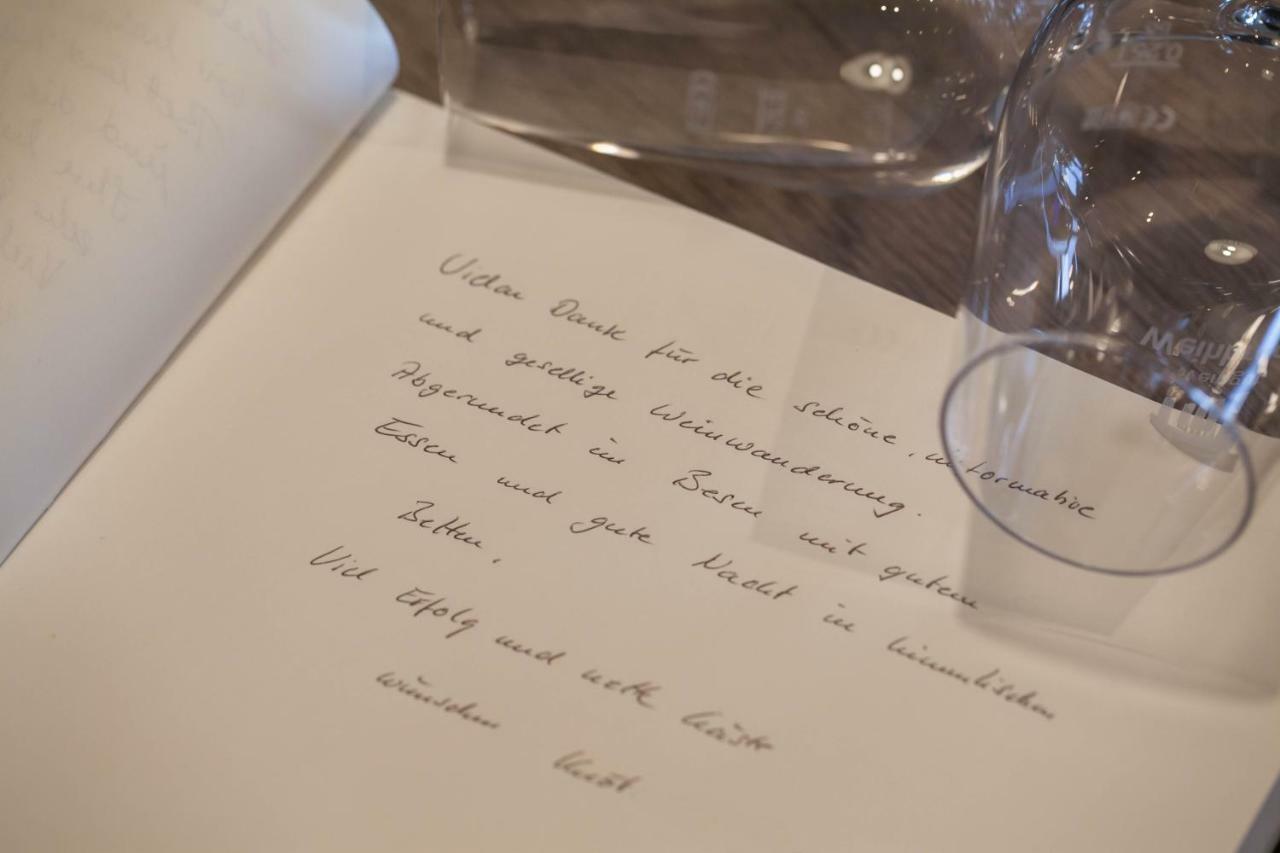 Vielen Dank für die schöne, informative
und gesellige Weinwanderung.
Abgerundet im Besen mit gutem
Essen und gute Nacht in himmlischen
Betten,
Viel Erfolg und nette Gäste
wünschen